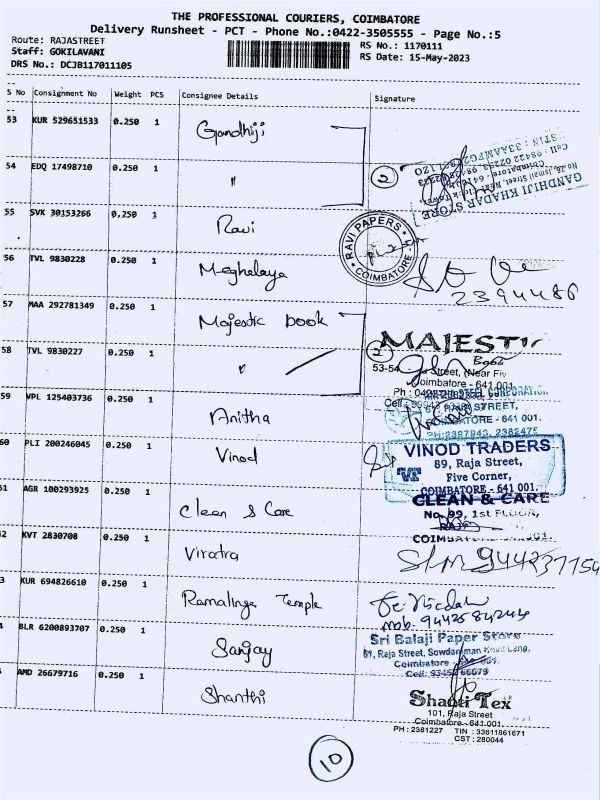 THE PROFESSIONAL COURIERS, COIMBATORE
Delivery Runsheet - PCT - Phone No.:0422-3505555 - Page No.:5
Route: RAJASTREET
Staff: GOKILAVANI
DRS No.: DCJB117011105
RS No.: 1170111
RS Date: 15-May-2023
S No Consignment No Weight PCS Consignee Details Signature
53 KUR 529651533 0.250 1 Gandhiji
54 EDQ 17498710 0.250 1 "
2
GANDHIJI KHADAR STORE
55 SVK 30153266 0.250 1 Ravi
RAVI PAPERS
COIMBATORE
56 TVL 9830228 0.250 1 Meghalaya
2394486
57 MAA 292781349 0.250 1 Majestic book
58 TVL 9830227 0.250 1 "
2
MAJESTIC
53-54 Street, (Near Fiv
Coimbatore - 641 001
59 VPL 125403736 0.250 1 Anitha
STREET,
COIMBATORE - 641 001.
PH:2387943, 2382475
60 PLI 200246045 0.250 1 Vinod
VINOD TRADERS
89, Raja Street,
Five Corner,
COIMBATORE - 641 001.
61 AGR 100293925 0.250 1 Clean & Care
CLEAN & CARE
No. 99, 1st FLOOR,
2 KVT 2830708 0.250 1 Viratra
3 KUR 694826610 0.250 1 Ramalinga Temple
4 BLR 6200893707 0.250 1 Sanjay
Sri Balaji Paper Store
61, Raja Street,
Coimbatore
AMD 26679716 0.250 1 Shanthi
Shanti Tex
101, Raja Street
Coimbatore - 641 001.
PH : 2381227 TIN : 33611861671
CST : 280044
10